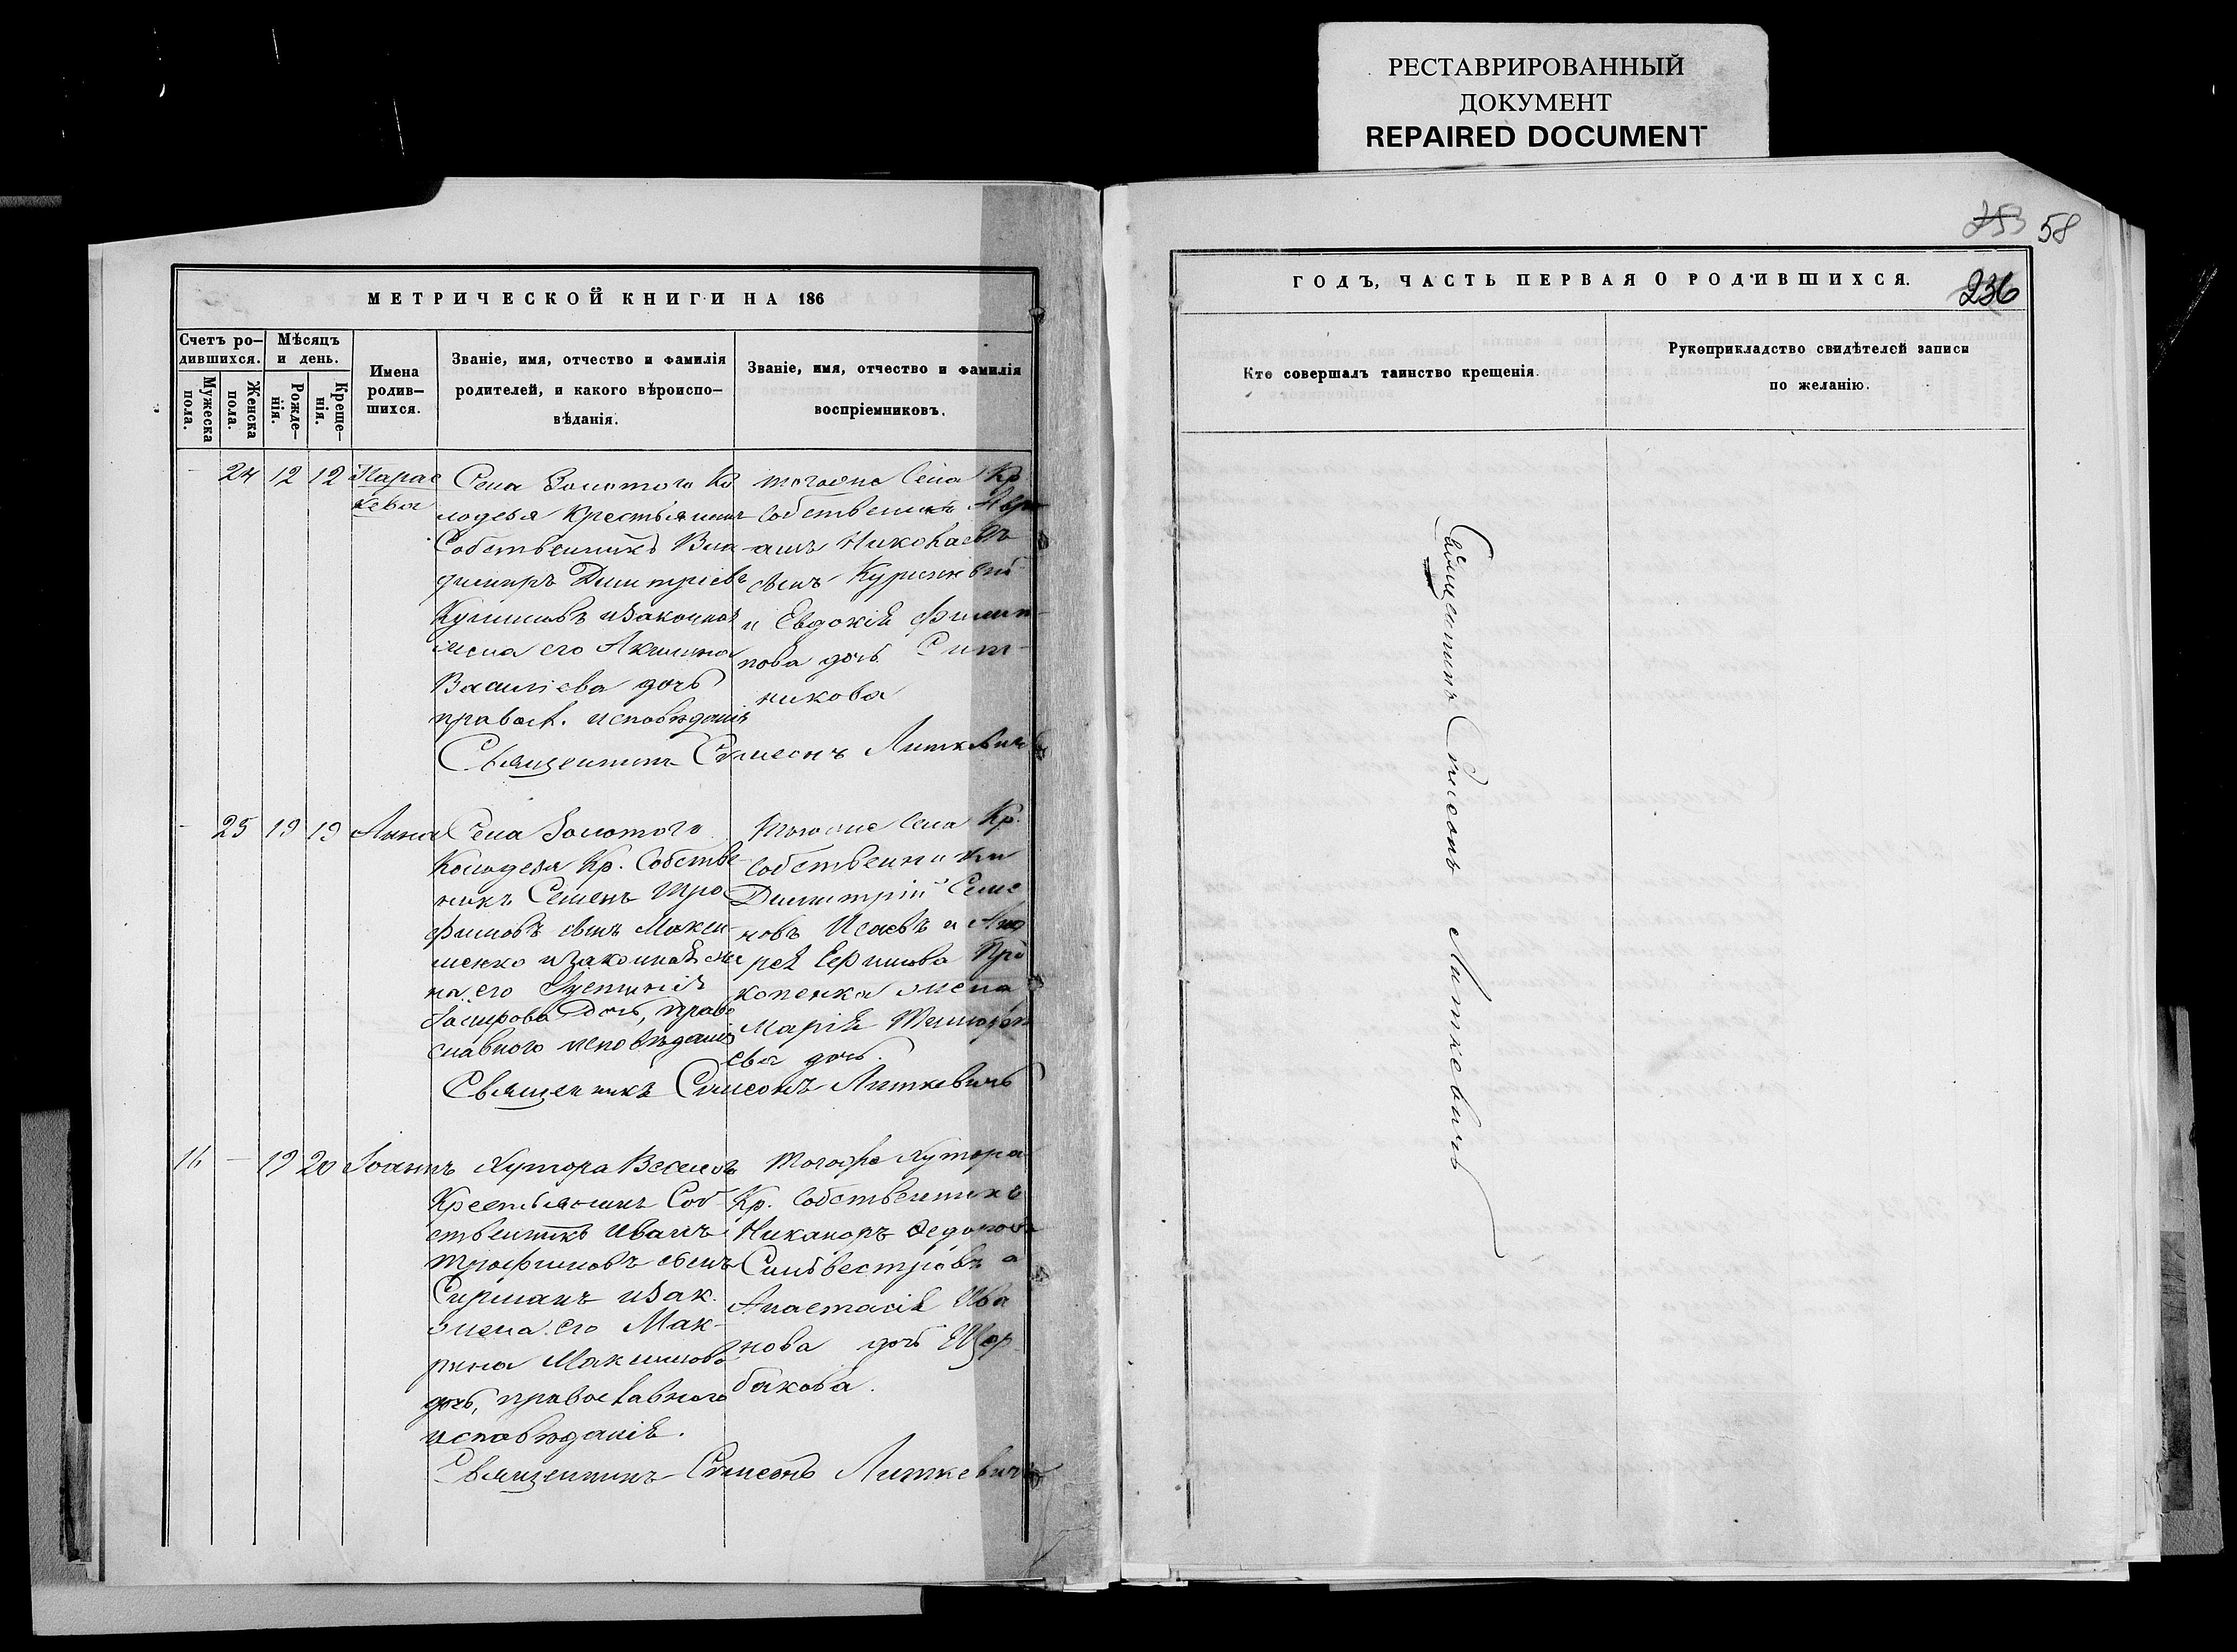 РЕСТАВРИРОВАННЫЙ
ДОКУМЕНТ
REPAIRED DOCUMENT
МЕТРИЧЕСКОЙ КНИГИ НА 186
Счетъ ро-
дившихся.
Мужеска
пола.
Женска
пола.
Мѣсяцъ
и день.
Рожде-
нія.
Креще-
нія.
Имена
родив-
шихся.
Званіе, имя, отчество и фамилія
родителей, и какого вѣроиспо-
вѣданія.
Званіе, имя, отчество и фамилія
воспріемниковъ.
24 12 12
Парас
кева
Села Золотого Ко
лодезя Крестьянинъ
Собственникъ Вла
димиръ Димитріевъ
изаконная
жена его Акилина
Васильева дочь
правосл. исповѣданія
тогоже Села Кр.
Собственникъ
Николаевъ
сынъ
и Евдокія Филип-
пова дочь Сит-
никова
Священникъ Симеонъ Литкевичъ
25 19 19
Анна
Села Золотого
Колодезя Кр. Собстве-
никъ Семенъ Тро
фимовъ сынъ Макси-
менко изаконная же
на его
дочь, право
славного исповѣданія
тогоже Села Кр.
Собственники
Димитрій Семе
новъ Исаевъ и Анд
рея Ефимова Про
копенка жена
Марія
ева дочь.
Священникъ Симеонъ Литкевичъ
16 — 19 20
Іоаннъ
Хутора
Крестьянинъ Соб-
ственникъ Иванъ
Трофимовъ сынъ
изак.
жена его Мак-
рина Максимова
дочь, православного
исповѣданія.
тогоже Хутора
Кр. Собственникъ
Никаноръ Федоровъ
Сильвестровъ и
Анастасія Ива
нова дочь Щер-
бакова.
Священникъ Симеонъ Литкевичъ
253 58
236
ГОДЪ, ЧАСТЬ ПЕРВАЯ О РОДИВШИХСЯ.
Кто совершалъ таинство крещенія.
Рукоприкладство свидѣтелей записи
по желанію.
Священникъ Симеонъ Литкевичъ